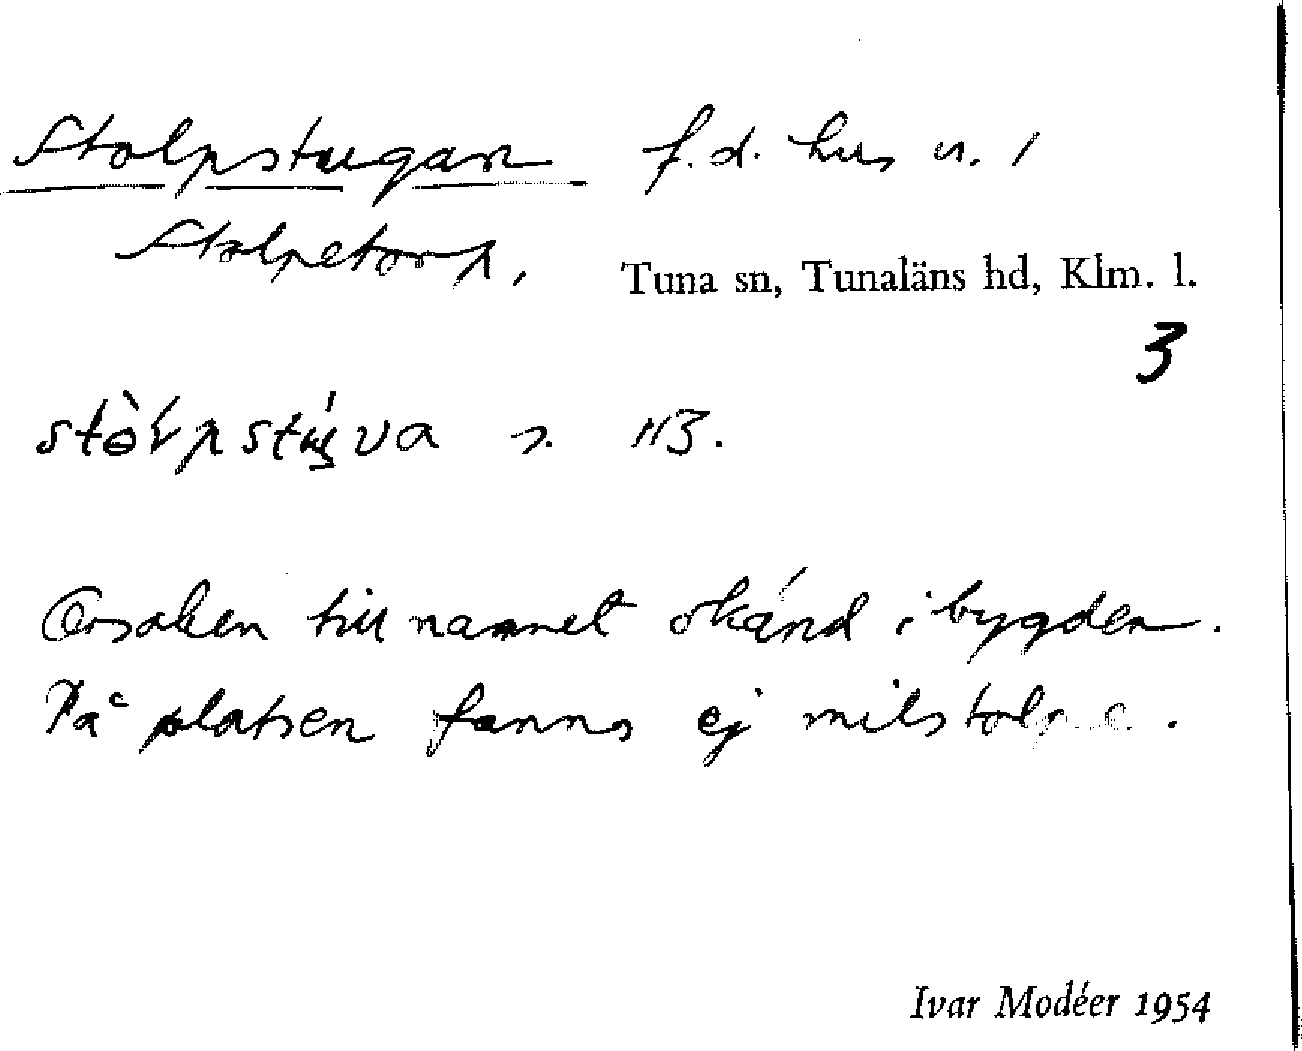 Stolpstugan f.d. hus n. 1
Stolpetorp,
Tuna sn, Tunaläns hd, Klm. l.
3
Orsaken till namnet okänd i bygden.
På platsen fanns ej milstolpe.
Ivar Modéer 1954